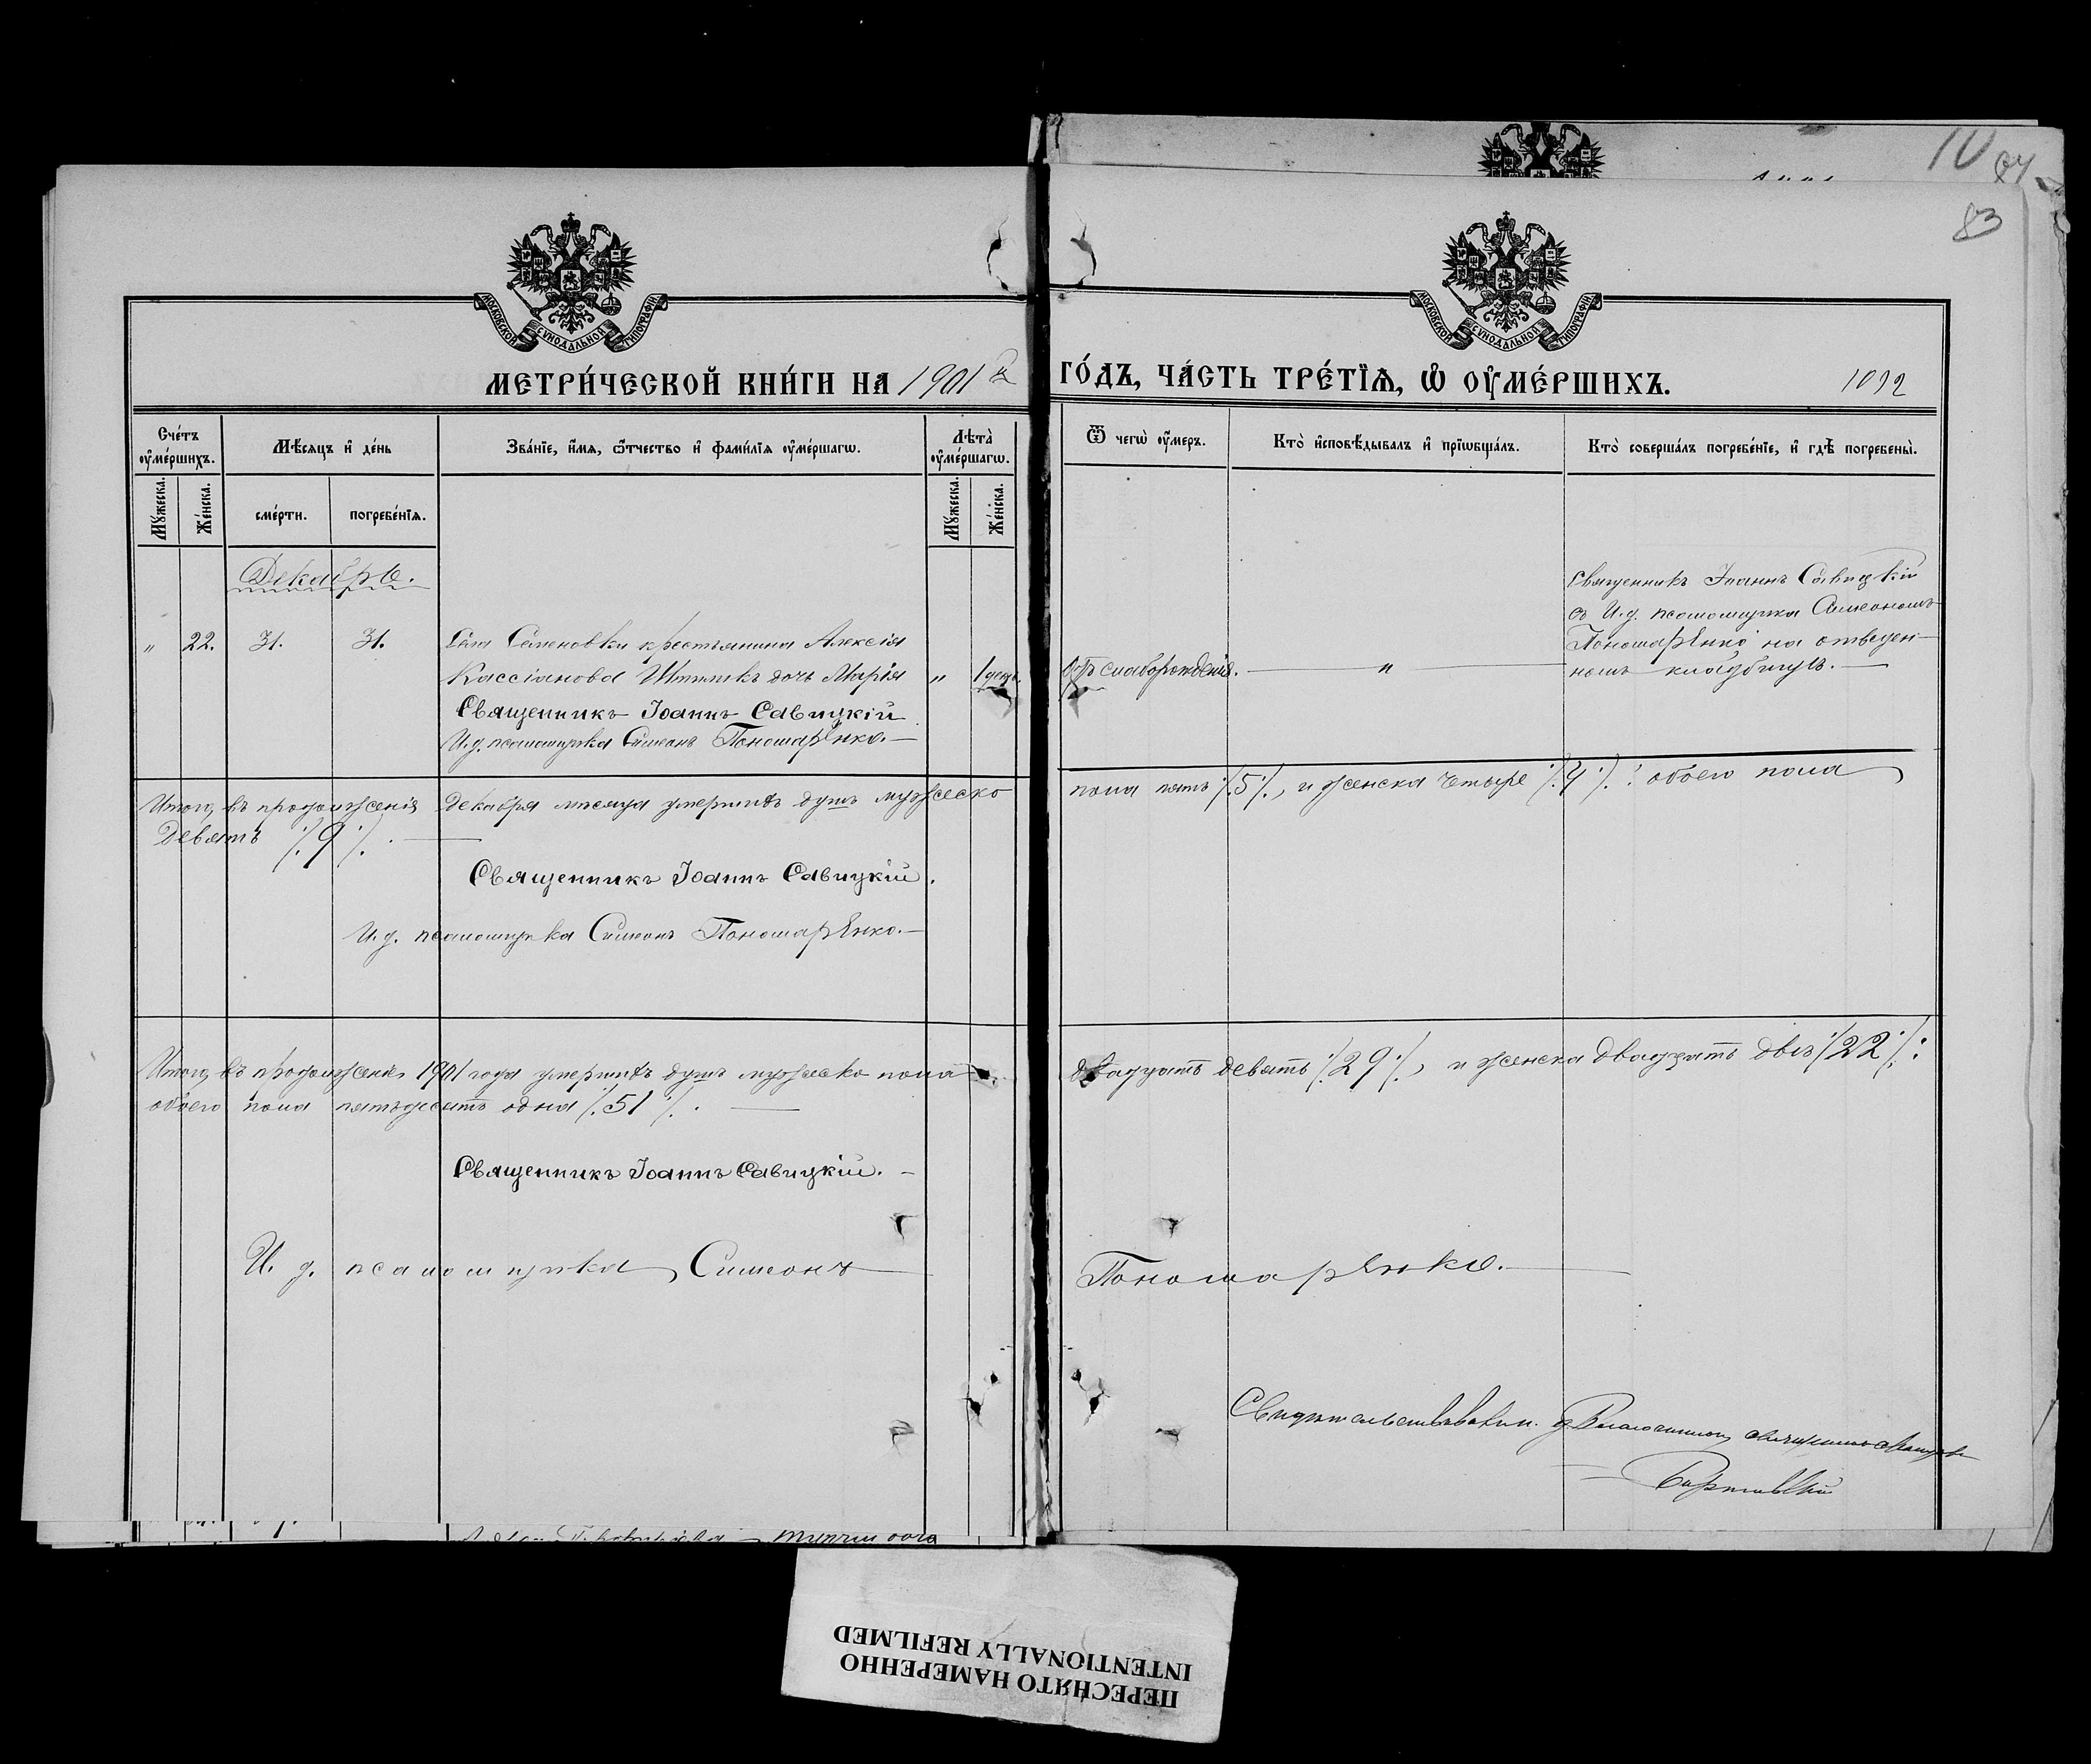 10 84
83
МОСКОВСКОЙ СУНОДАЛЬНОЙ ТИПОГРАФІИ
МОСКОВСКОЙ СУНОДАЛЬНОЙ ТИПОГРАФІИ
МЕТРИ́ЧЕСКОЙ КНИ́ГИ НА 1901й
ГО́ДЪ, ЧА́СТЬ ТРЕ́ТЇѦ, Ѡ҆ ОУ҆МЕ́РШИХЪ.
1092
Сче́тъ оу҆ме́ршихъ.
Мѣ́сяцъ и҆ де́нь
Зва́нїе, и҆́мѧ, ѻ҆́тчество и҆ фами́лїѧ оу҆ме́ршагѡ.
Лѣта̀ оу҆ме́ршагѡ.
Ѿ чегѡ̀ оу҆́меръ.
Кто̀ и҆сповѣ́дывалъ и҆ прїѡбща́лъ.
Кто̀ соверша́лъ погребе́нїе, и҆ гдѣ̀ погребены̀.
Мꙋ́жеска.
Же́нска.
сме́рти.
погребе́нїѧ.
Мꙋ́жеска.
Же́нска.
Декабрь.
„ 22. 31. 31.
Села Семеновки крестьянина Алексія
Кассіанова Штыпкъ дочь Марія
„ 1 день.
Священникъ Іоаннъ Савицкій
И. д. псаломщика Симеонъ Пономаренко.—
Отъ слаборожденія. — „ —
Священникъ Іоаннъ Савицкій
съ И. д. псаломщика Симеономъ
Пономаренко на отведен-
номъ кладбищѣ.—
Итого, въ продолженія Декабря мѣсяца умершихъ душъ мужеско
пола пять /:5:/, и женска четыре /:4:/: обоего пола
Девять /:9:/. —
Священникъ Іоаннъ Савицкій.
И. д. псаломщика Симеонъ Пономаренко.—
Итого, въ продолженіи 1901 года умершихъ душъ мужеско пола
двадцать девять /:29:/, и женска двадцать двѣ /:22:/:
обоего пола пятьдесятъ одна /:51:/. —
Священникъ Іоаннъ Савицкій.—
И. д. псаломщика, Симеонъ
Пономаренко.—
Свидѣтельствовали: Благочинный, священникъ
ПЕРЕСНЯТО НАМЕРЕННО
INTENTIONALLY REFILMED